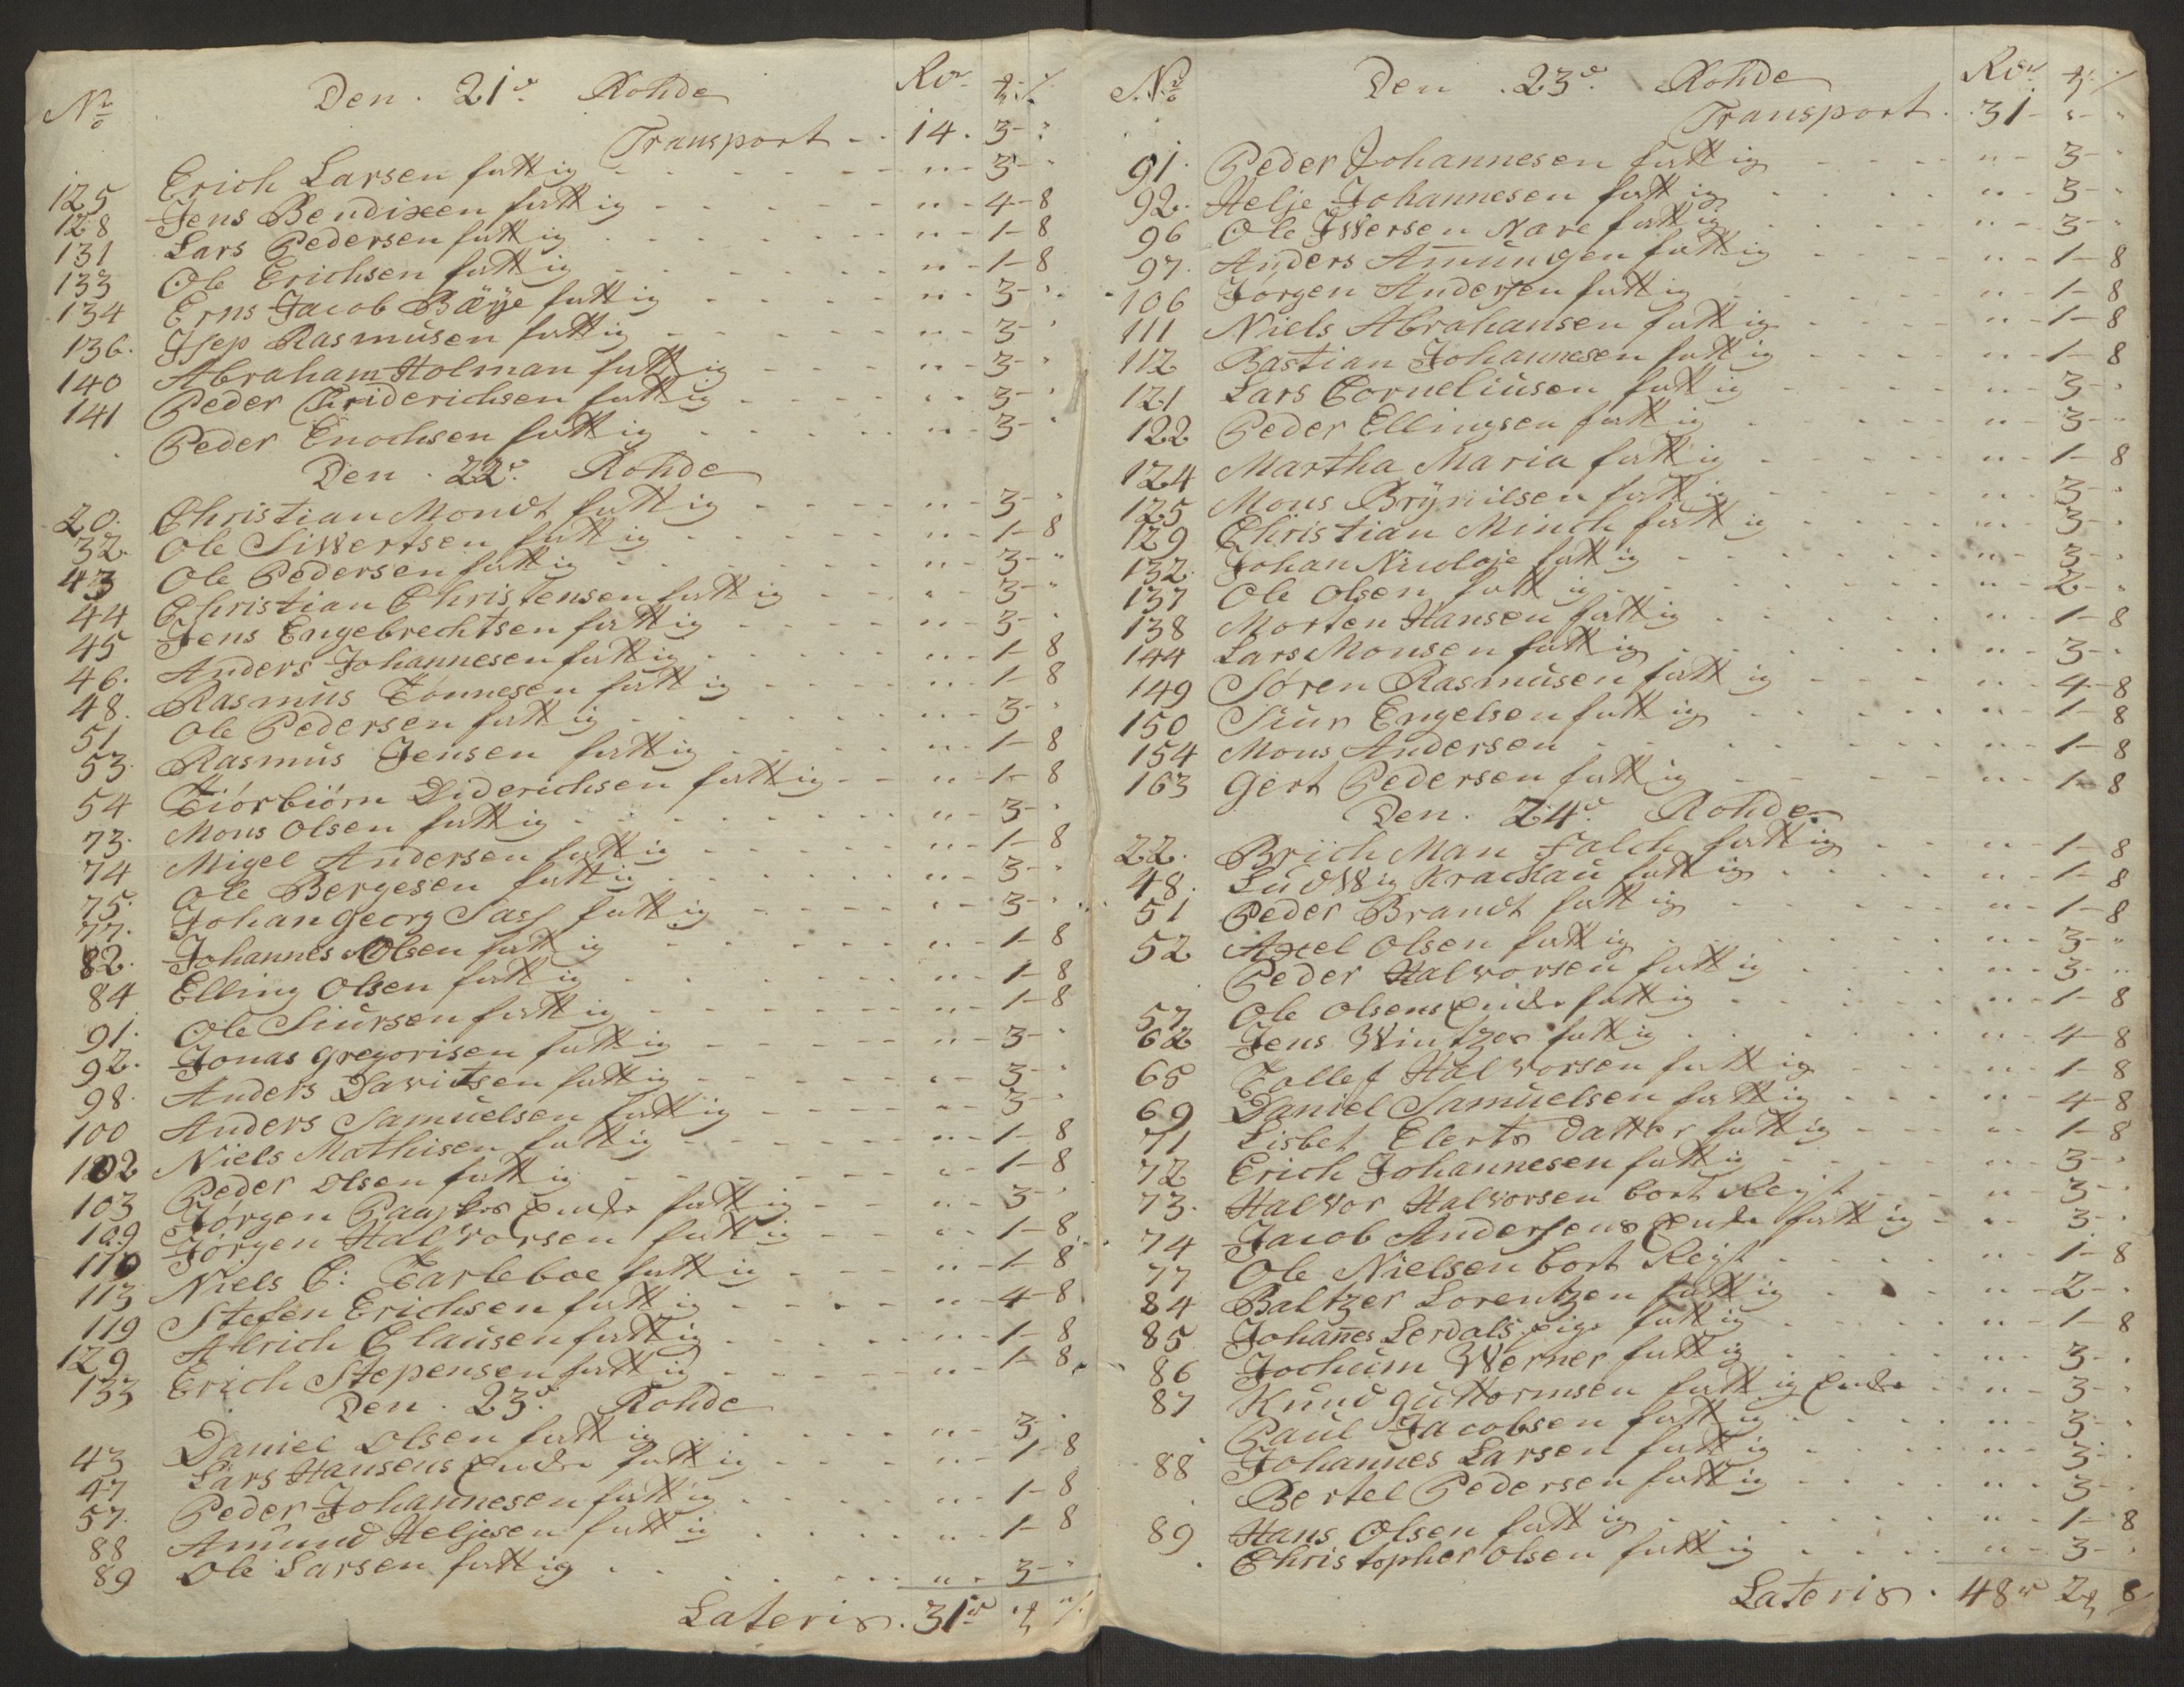 No Den. 21de Rohde Rdr ꝑ ß
Transport - - 14. 3- "
125 Erich Larsen futtig - - - - - - " - 3- "
128 Jens Bendixen futtig - - - - - " - 4- 8
131 Lars Pedersen futtig . . . . . . " - 1- 8
133 Ole Erichsen futtig - - - - - - " - 1- 8
134 Erns Jacob Bæye futtig - - - - - " - 3- "
136. Jsep Rasmusen futtig - - - - - " - 3- "
140 Abraham Holman futtig - - - - " - 3- "
141 Peder Thriderichsen futtig - - - - " - 3- "
. Peder Enochsen futtig - - - - - " - 3- "
Den. 22de Rohde
20. Christian Mondt futtig - - - - " - 3- "
32. Ole Siwertsen futtig - - - - - " - 1- 8
43 Ole Pedersen futtig - - - - - - " - 3- "
44 Christian Christensen futtig - - - " - 3- "
45 Jens Engebrechtsen futtig - - - - " - 3- "
46. Anders Johannesen futtig - - - - " - 1- 8
48. Rasmus Tönnesen futtig - - - - " - 1- 8
51 Ole Pedersen futtig - - - - - - " - 3- "
53. Rasmus Jensen futtig - - - - - " - 1- 8
54 Tiörbiörn Diderichsen futtig - - " - 1- 8
73. Mons Olsen futtig - - - - - - " - 3- "
74 Migel Andersen futtig - - - - - " - 1- 8
75. Ole Bergesen futtig - - - - - - " - 3- "
77. Johan georg Sass futtig - - - - " - 3- "
82. Johannes Olsen futtig - - - - - " - 1- 8
84 Elling Olsen futtig - - - - - - " - 1- 8
91. Ole Siursen futtig - - - - - - " - 1- 8
92. Jonas gregorisen futtig - - - - - " - 3- "
98. Anders Davitsen futtig - - - - - " - 3- "
100 Anders Samuelsen futtig - - - - " - 3- "
102 Niels Mathisen futtig - - - - - " - 1- 8
103 Peder Olsen futtig - - - - - - " - 1- 8
109 Jörgen Enche futtig - - " - 3- "
110 Jörgen Halvorsen futtig - - - " - 1- 8
113 Niels C: Tarleboe futtig - - - - " - 1- 8
119 Stefen Erichsen futtig - - - - - " - 4- 8
129 Alrich Clausen futtig - - - - - " - 1- 8
133 Erich Stepensen futtig - - - - - " - 1- 8
Den. 23de Rohde
43 Daniel Olsen futtig - - - - - " - 3- "
47 Lars Hansens Enche futtig - - - " - 1- 8
57. Peder Johannesen futtig - - - - " - 1- 8
88 Amund Heljesen futtig - - - - - " - 1- 8
89 Ole Larsen futtig - - - - - - - " - 3- "
Lateris. 31dr " ꝑ " ß
No Den. 23de Rohde Rdr ꝑ ß
Transport. . 31- "- "
91. Peder Johannesen futtig - - - - " - 3- "
92. Helje Johannesen futtig - - - - " - 3- "
96 Ole Iwersen Nare futtig - - - - " - 3- "
97. Anders Amungen futtig - - - - " - 1- 8
106 Jörgen Andersen futtig - - - - - " - 1- 8
111 Niels Abrahansen futtig - - - - " - 1- 8
112 Bastian Johannesen futtig - - - - " - 1- 8
121 Lars Corneliusen futtig - - - - - " - 3- "
122 Peder Ellingsen futtig - - - - - " - 3- "
124 Martha Maria futtig - - - - - " - 1- 8
125 Mons Brynilsen futtig - - - - - " - 3- "
129 Christian Minch futtig - - - - " - 3- "
132. Johan Nicolaje futtig - - - - - - " - 3- "
137 Ole Olsen futtig - - - - - - - " - 2- "
138 Morten Hansen futtig - - - - - " - 1- 8
144 Lars Monsen futtig - - - - - - " - 3- "
149 Sören Rasmusen futtig - - - - " - 4- 8
150 Siur Engelsen futtig - - - - - " - 1- 8
154 Mons Andersen - - - - - - - " - 1- 8
163 Gert Pedersen futtig - - - - - " - 1- 8
Den. 24de Rohde
22. Brich Man Falch futtig - - " - 1- 8
48. Ludwig Krachlau futtig - - - - " - 1- 8
51 Peder Brandt futtig - - - - - " - 1- 8
52 Axel Olsen futtig - - - - - - " - 3- "
Peder Halvorsen futtig - - - - " - 3- "
57 Ole Olsens Enche futtig - - - - - " - 1- 8
62 Jens Wintzer futtig - - - - - " - 4- 8
65 Tollef Halvorsen futtig - - - " - 1- 8
69 Daniel Samuelsen futtig - - - " - 4- 8
71 Lisbet Elerts Datter futtig - - - " - 1- 8
72 Erich Johannesen futtig - - - - " - 3- "
73. Halvor Halvorsen bort Rejst - - " - 3- "
74 Jacob Andersens Enche futtig - " - 3- "
77 Ole Nielsen bort Rejst - - - - " - 1- 8
84 Baltzer Lorentzen futtig - - - " - 2- "
85 Johanes Lerdals pige futtig - - - - " - 1- 8
86 Jochum Werner futtig - - - - - " - 3- "
87 Knud Guttormsen futtig Enche - " - 3- "
. Paul Jacobsen futtig - - - - - " - 3- "
88 Johannes Larsen futtig - - - - " - 3- "
. Bertel Pedersen futtig - - - - " - 3- "
89 Hans Olsen futtig - - - - - - " - 1- 8
. Christopher Olsen futtig - - - - " - 3- "
Lateris. 48dr 2ꝑ 8